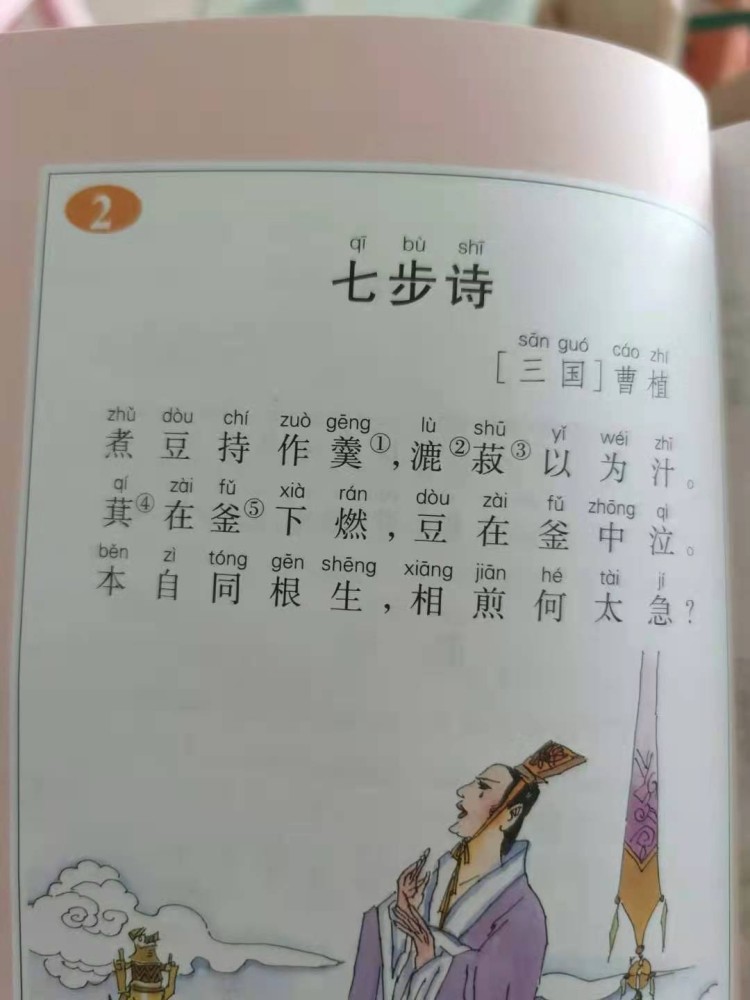 2
qī bù shī
七步诗
sān guó cáo zhí
[三国]曹植
zhǔ dòu chí zuò gēng lù shū yǐ wéi zhī
煮豆持作羹①,漉②菽③以为汁。
qí zài fǔ xià rán dòu zài fǔ zhōng qì
萁④在釜⑤下燃,豆在釜中泣。
běn zì tóng gēn shēng xiāng jiān hé tài jí
本自同根生,相煎何太急?